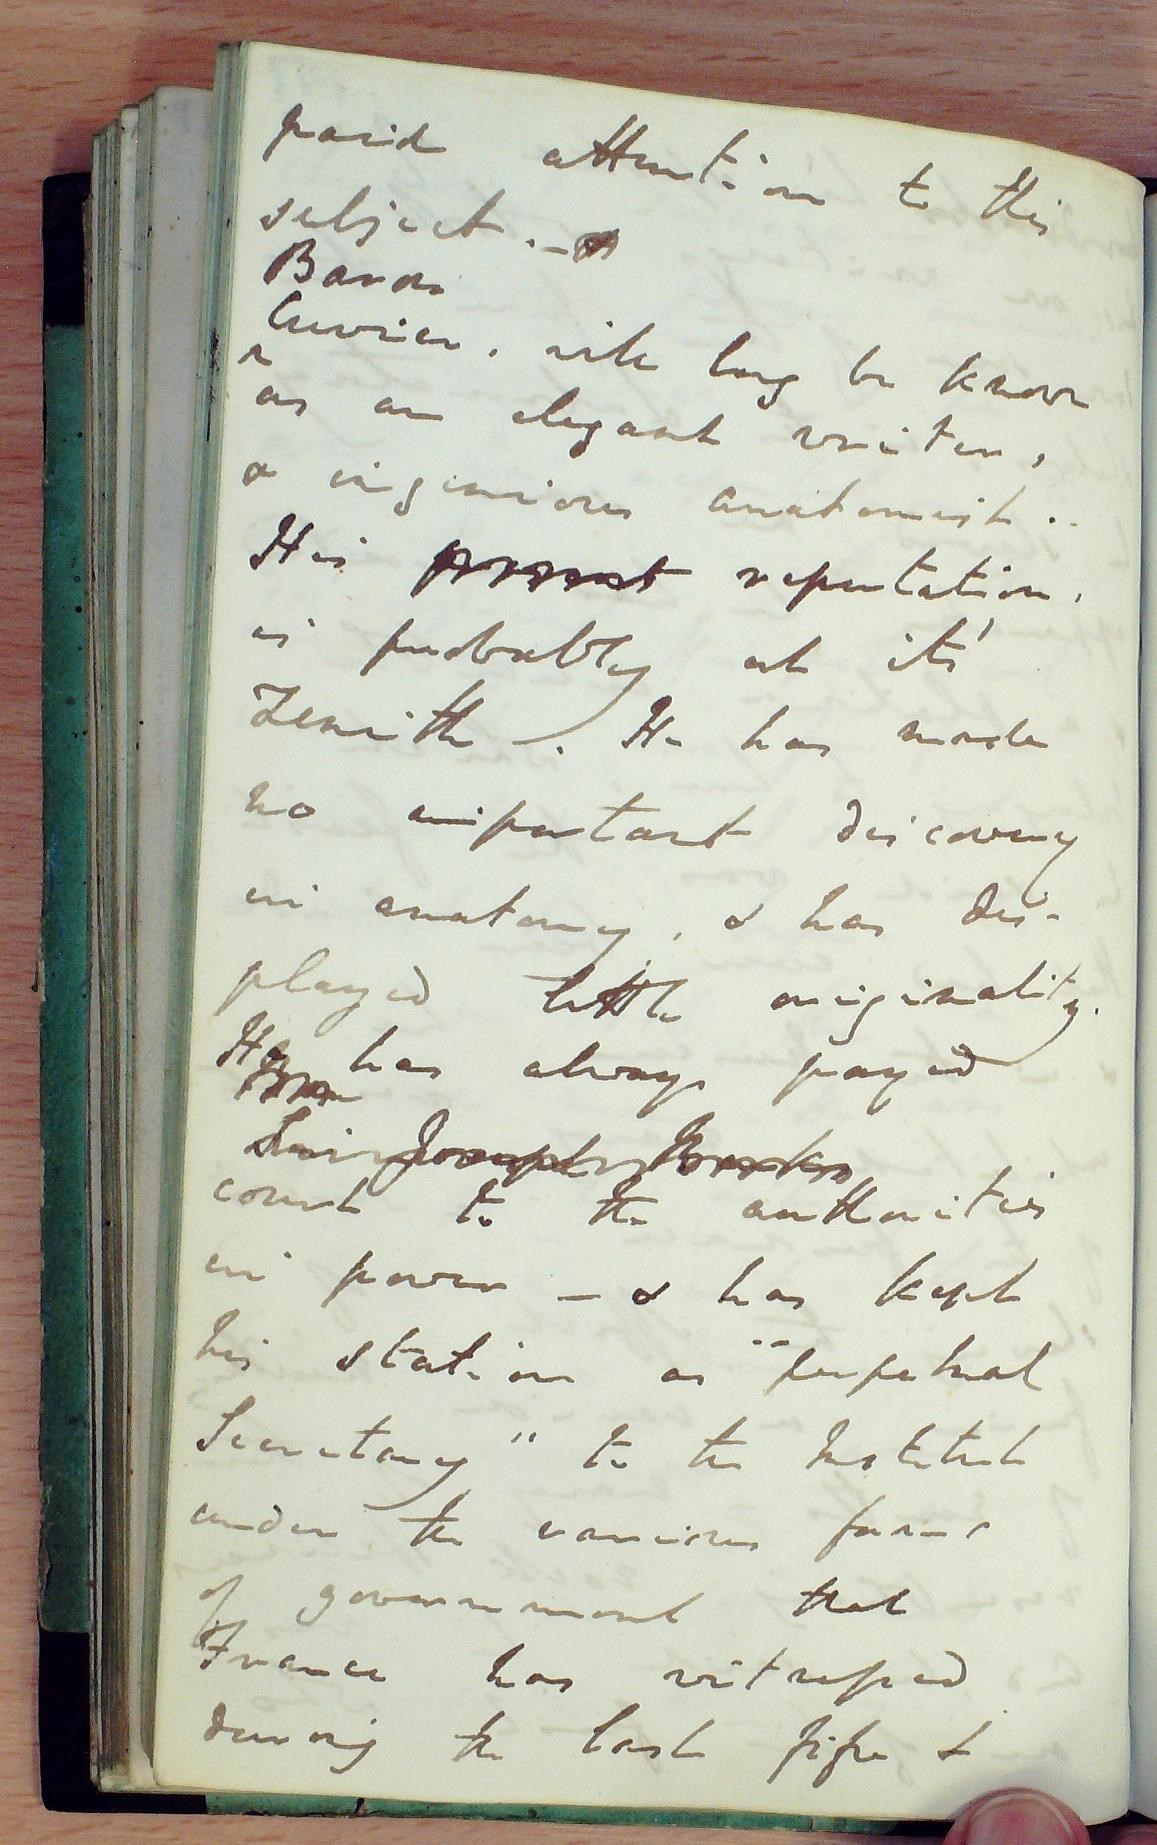 paid attention to this
subject. –
Baron
Cuvier. will long be known
^
as an elegant writer,
& ingenious anatomist..
His present reputation,
is probably at it's
Zenith –. He has made
no important discovery
in anatomy, & has dis-
played little originality.
He has always payed
Sir Joseph Banks
court to the authorities
in power – & has kept
his station as "perpetual
Secretary" to the Institute
under the various forms
of government that
France has witnessed
during the last fifte &